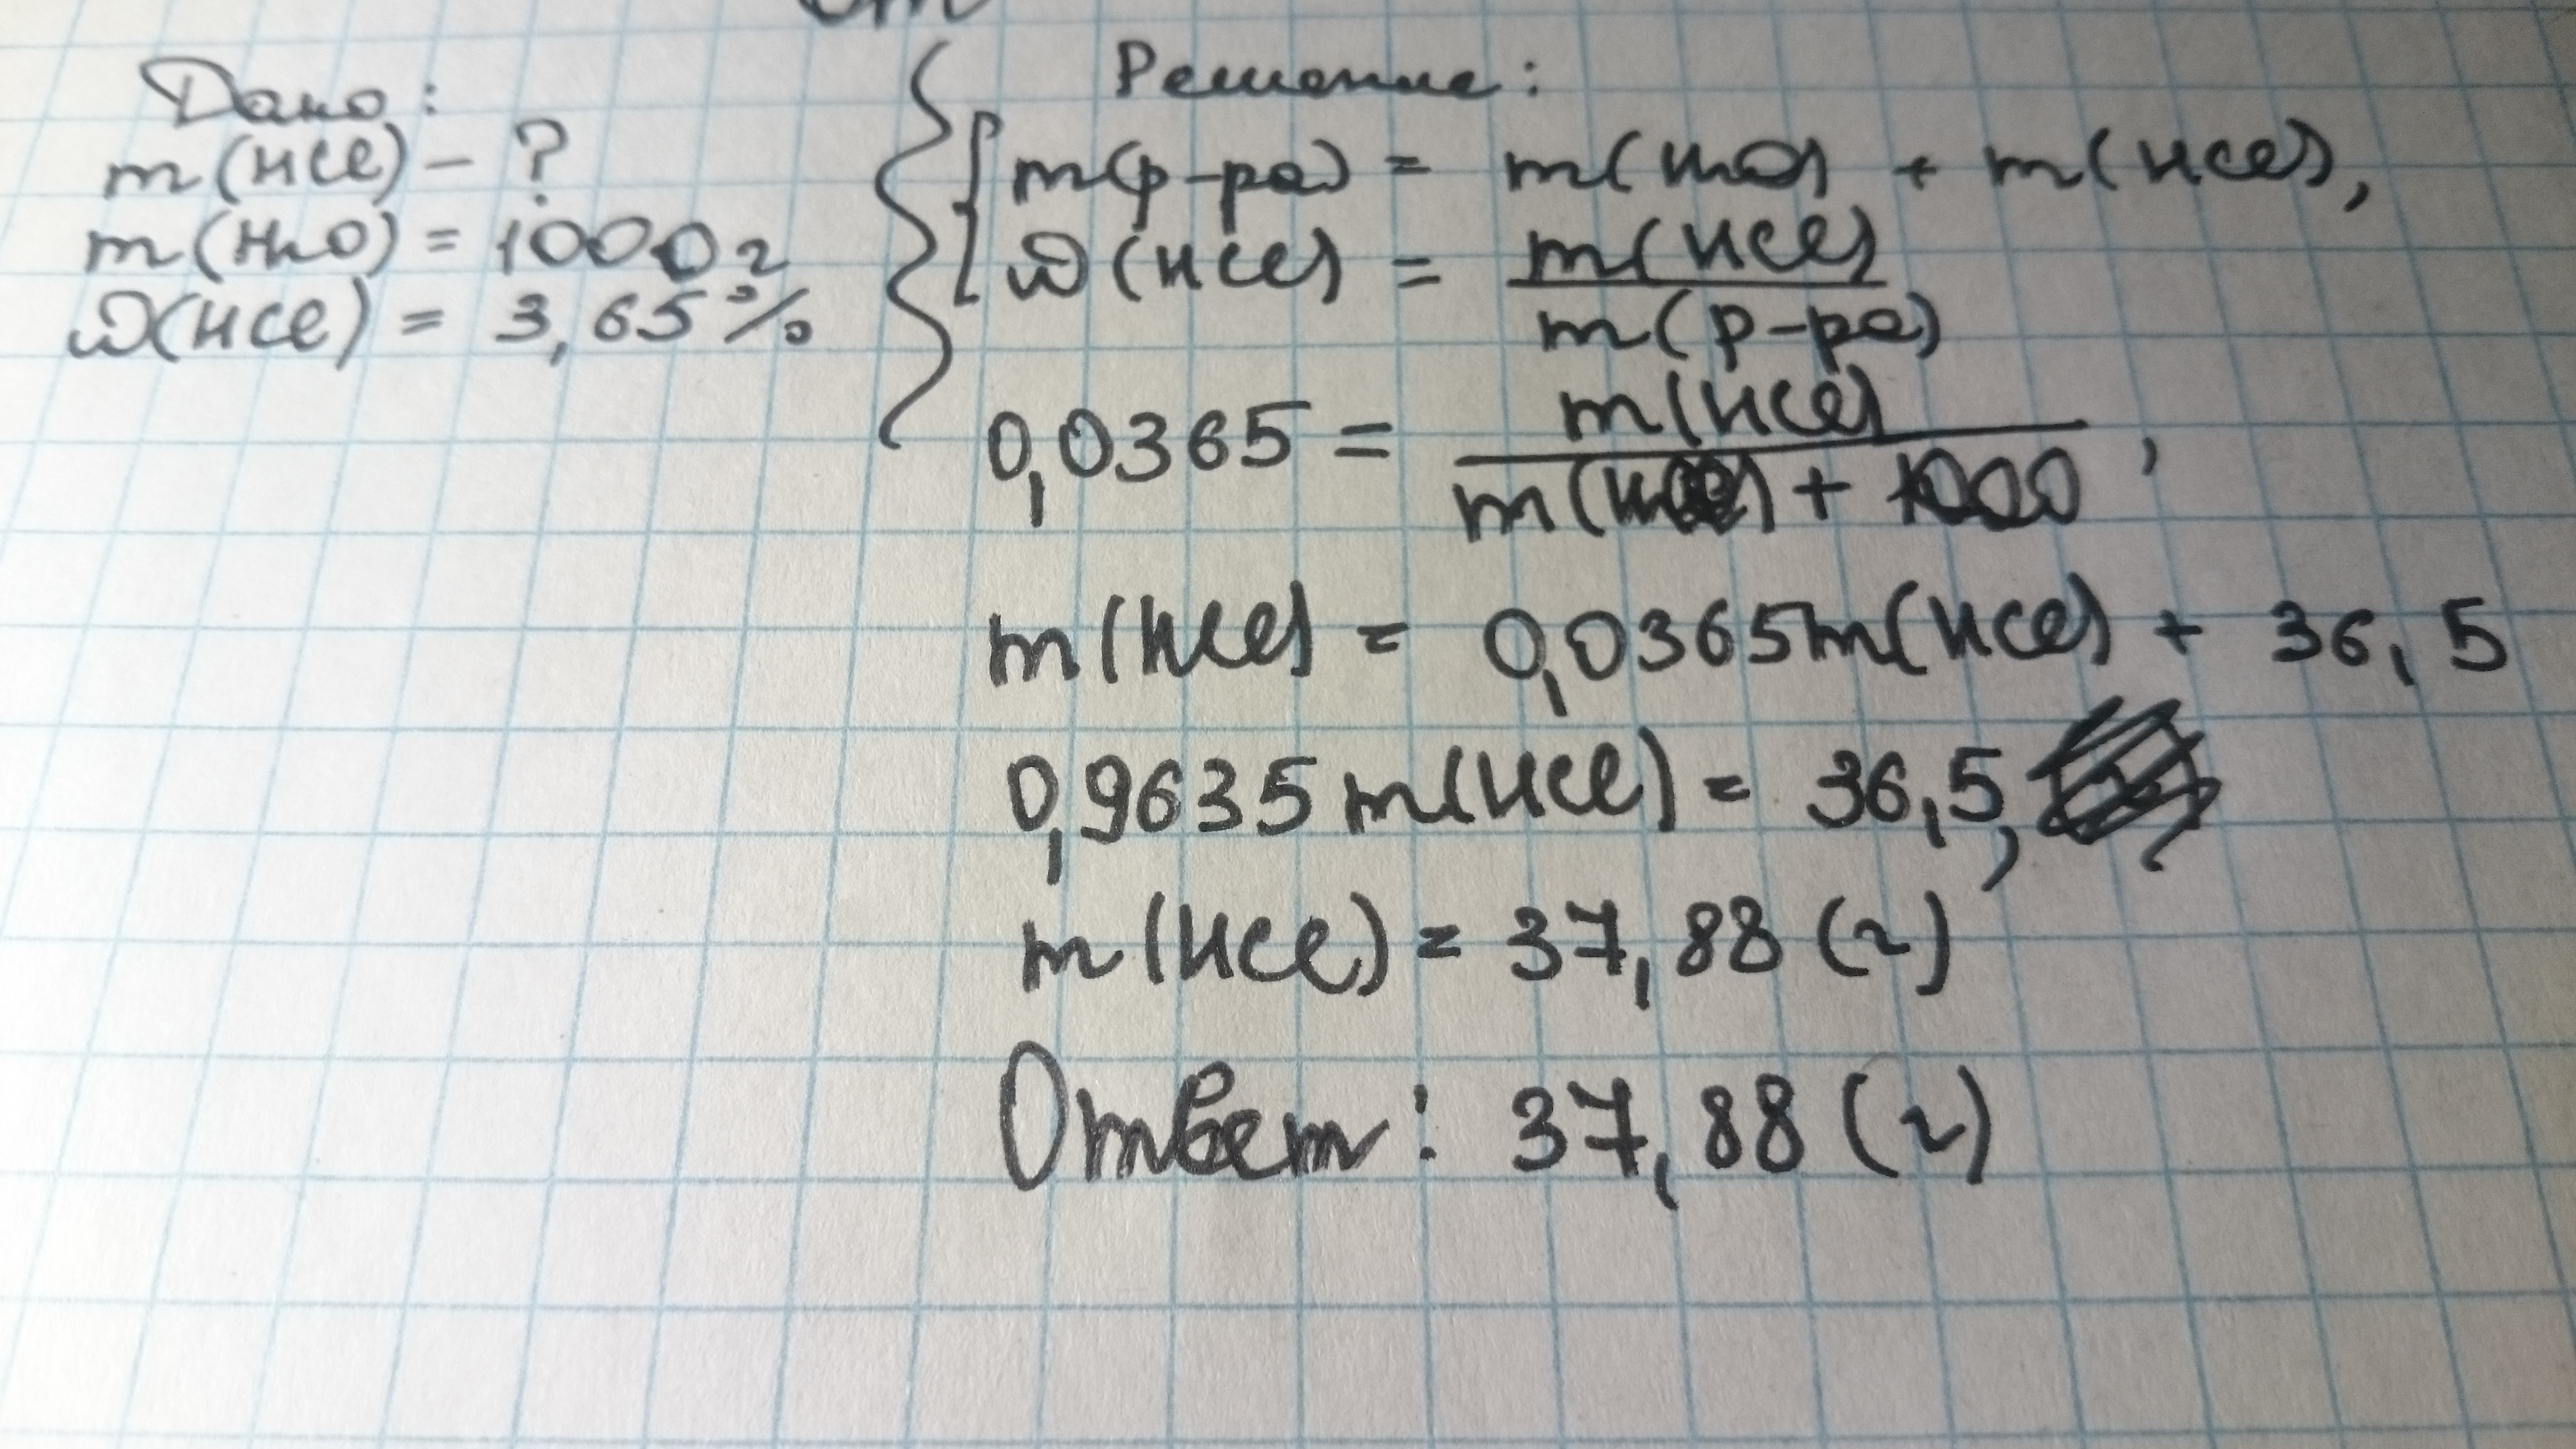 Дано:
m(HCl) - ?
m(H2O) = 1000 г
ω(HCl) = 3,65%
Решение:
m(р-ра) = m(H2O) + m(HCl),
ω(HCl) = m(HCl)
m(р-ра)
0,0365 = m(HCl)
m(HCl) + 1000 ,
m(HCl) = 0,0365m(HCl) + 36,5
0,9635 m(HCl) = 36,5,
m(HCl) = 37,88 (г)
Ответ: 37,88 (г)